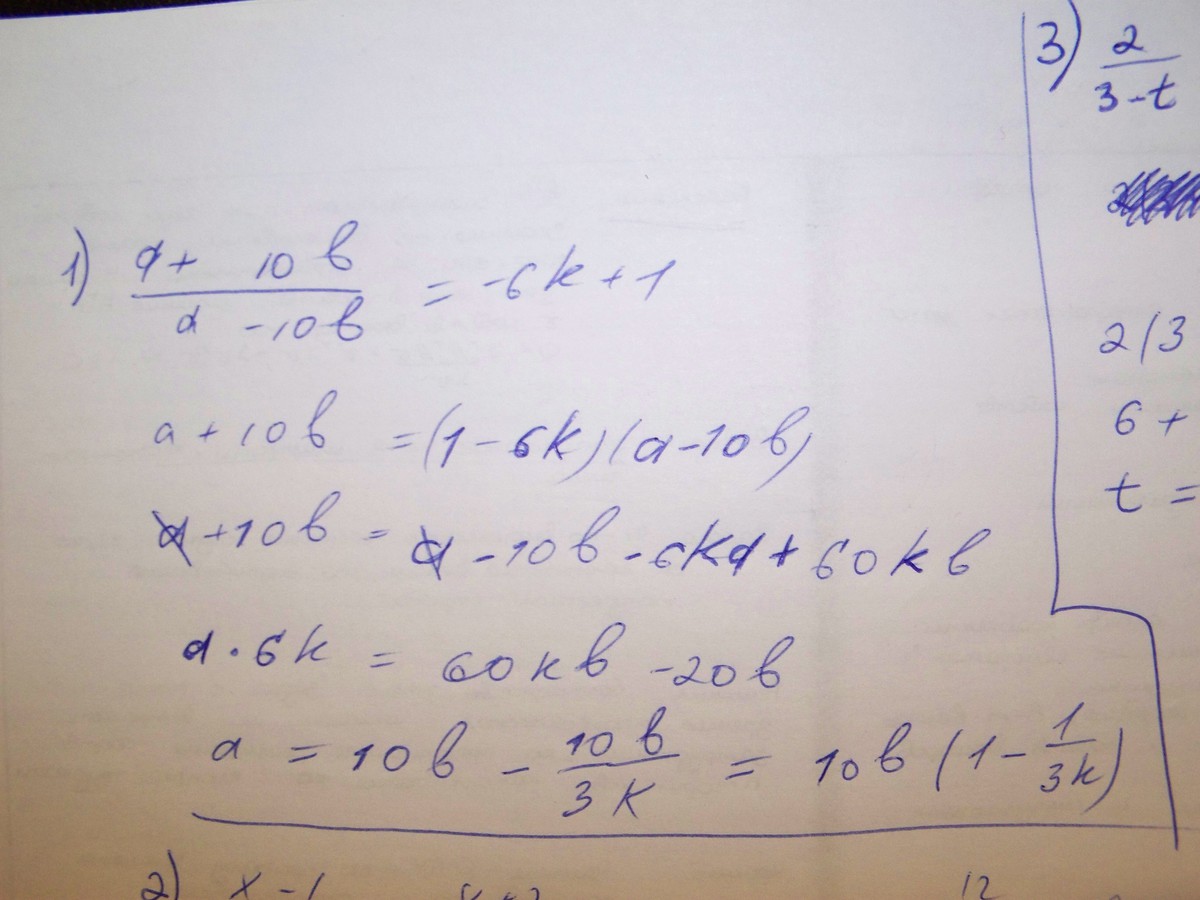 1) a + 10b / a - 10b = -6k + 1
a + 10b = (1 - 6k)(a - 10b)
a + 10b = a - 10b - 6ka + 60kb
a · 6k = 60kb - 20b
a = 10b - 10b / 3k = 10b (1 - 1/3k)
2) x - 1
12
3) 2 / 3 - t
2(3
6 +
t =